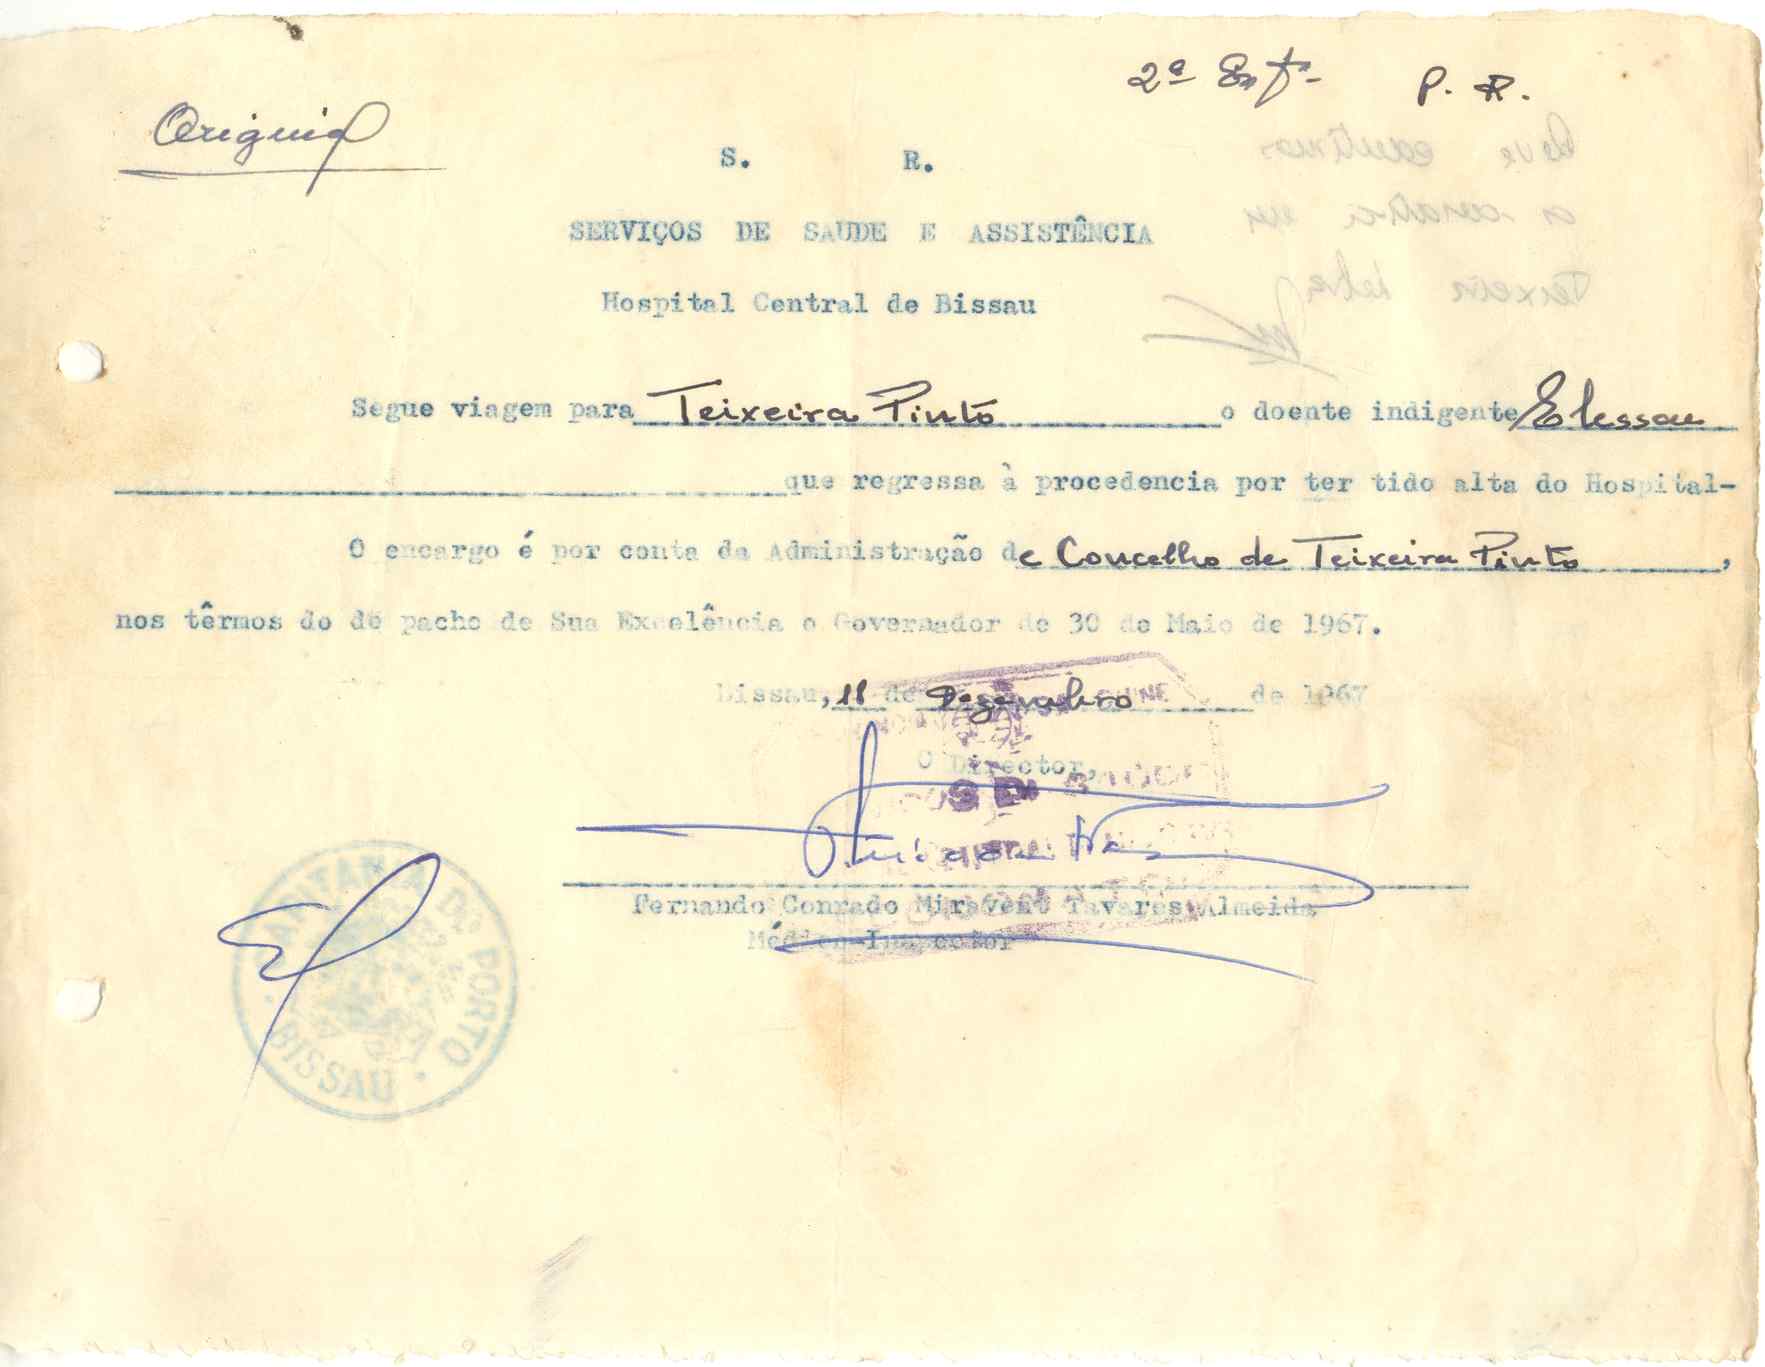 2ª Enfª P. R.
Original
S. R.
SERVIÇOS DE SAUDE E ASSISTÊNCIA
Hospital Central de Bissau
Segue viagem para Teixeira Pinto o doente indigente Elessau
que regressa à procedencia por ter tido alta do Hospital-
O encargo é por conta da Administração de Concelho de Teixeira Pinto,
nos têrmos do de pacho de Sua Excelência o Governador de 30 de Maio de 1967.
Bissau, 11 de Dezembro de 1967
O Director,
Fernando Conrado Miravent Tavares Almeida
Médico-Inspector
CAPITANIA DO PORTO
BISSAU